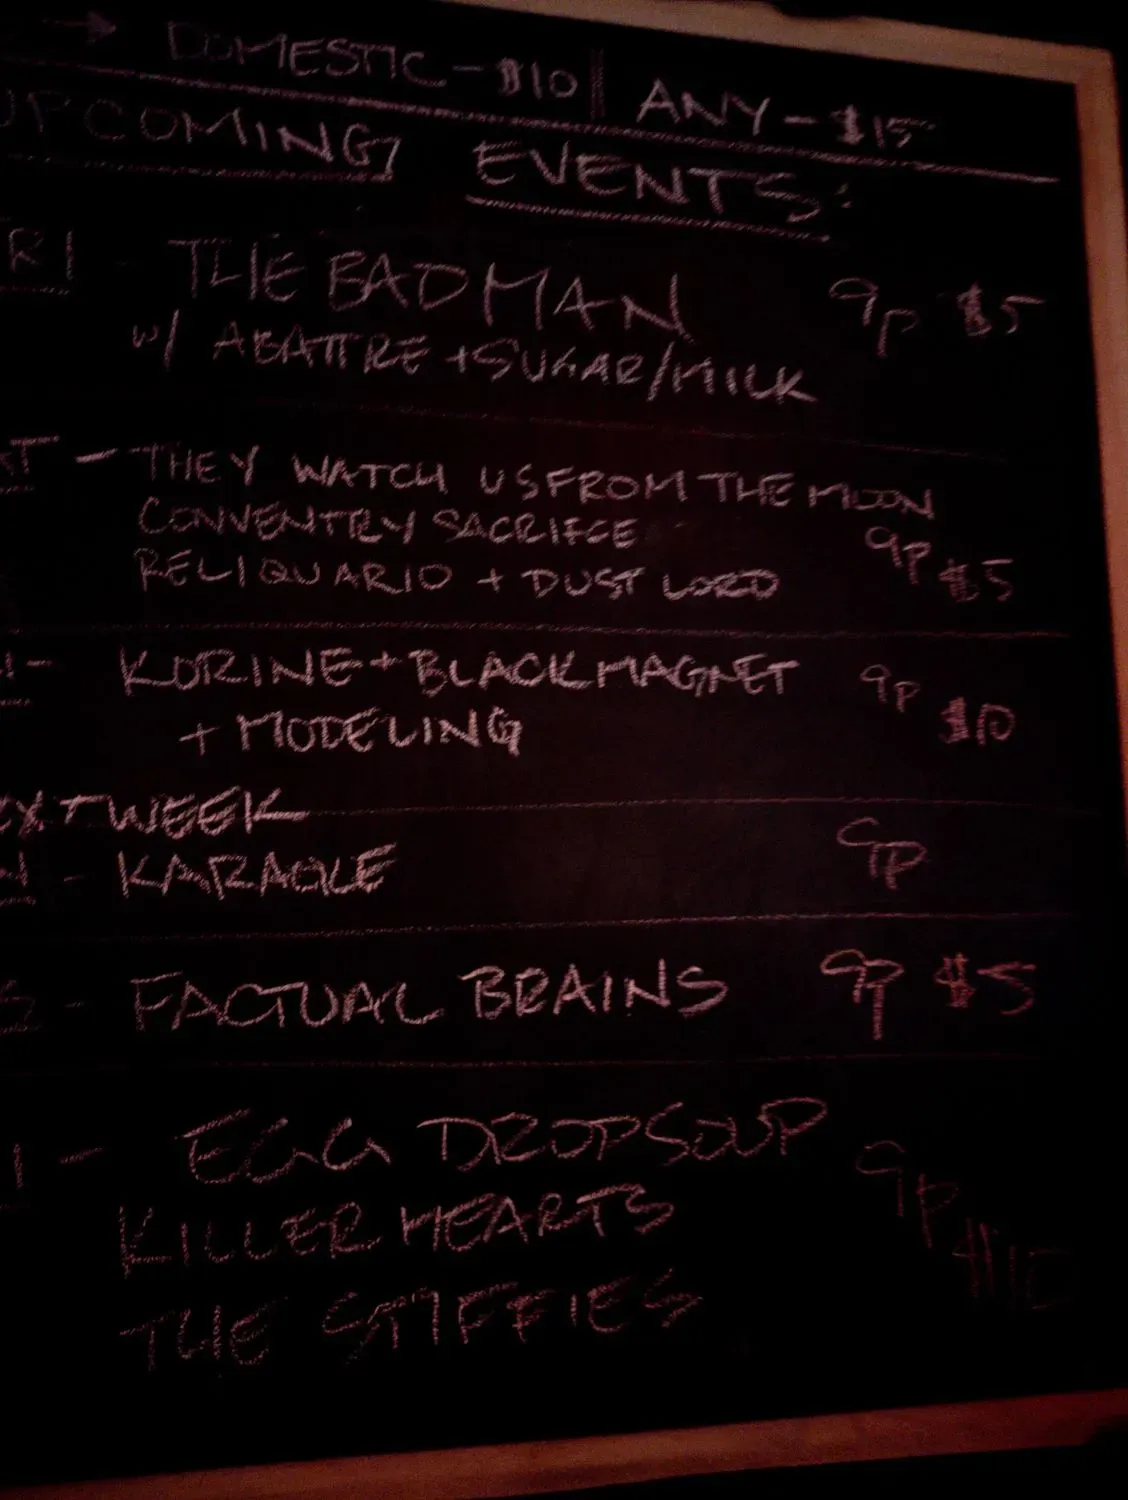 → DOMESTIC - $10 || ANY - $15
UPCOMING EVENTS:
RI - THE BAD MAN 9p $5
w/ ABATTRE + SUGAR/MILK
AT - THEY WATCH US FROM THE MOON
CONVENTRY SACRIFCE 9p $5
RELIQUARIO + DUST LORD
- KORINE + BLACK MAGNET 9p $10
+ MODELING
EXT WEEK
- KARAOKE 9p
S - FACTUAL BRAINS 9p $5
I - EGG DROP SOUP 9p $10
KILLER HEARTS
THE STIFFIES